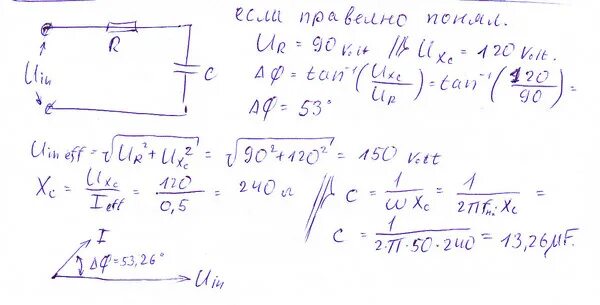 если правелно понял.
R
C
Uin
U_R = 90 Volt // U_Xc = 120 Volt.
Δφ = tan⁻¹(U_Xc/U_R) = tan⁻¹(120/90) =
Δφ = 53°
Uin eff = √(U_R² + U_Xc²) = √(90² + 120²) = 150 Volt
Xc = U_Xc/I eff = 120/0,5 = 240 Ω // C = 1/(ω Xc) = 1/(2πf · Xc) =
C = 1/(2·π·50·240) = 13,26 μF.
I
Δφ = 53,26°
Uin